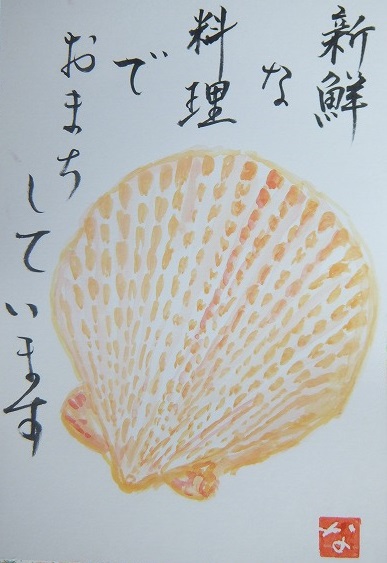 新鮮
な
料理
で
おまち
しています
な